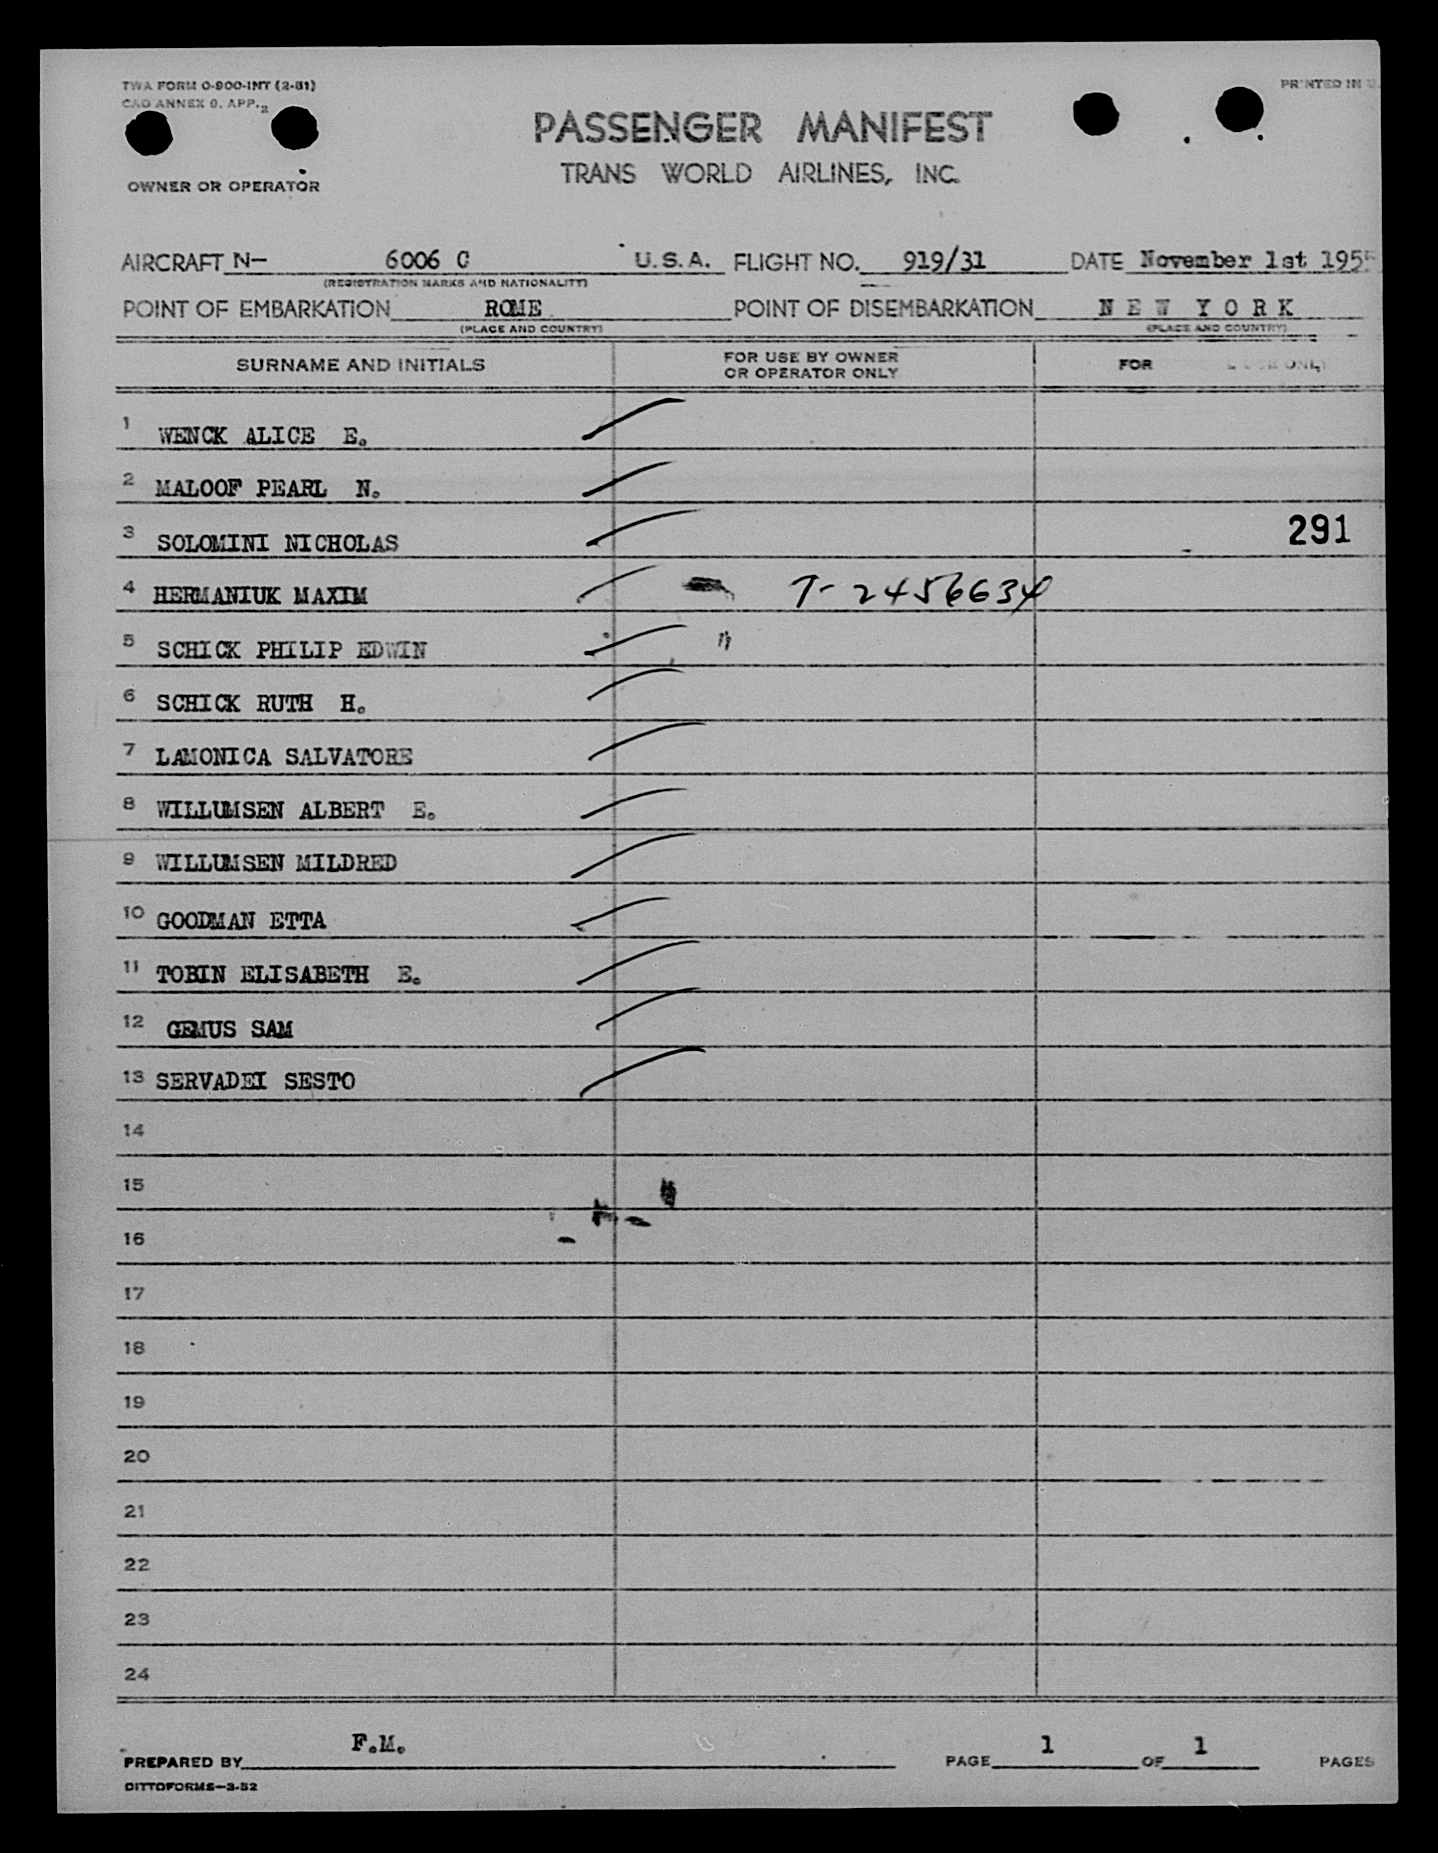 TWA FORM O-900-INT (2-51)
CAO ANNEX 9, APP. 2
PRINTED IN U.
PASSENGER MANIFEST
TRANS WORLD AIRLINES, INC.
OWNER OR OPERATOR
AIRCRAFT N- 6006 C U.S.A. FLIGHT NO. 919/31 DATE November 1st 1955
(REGISTRATION MARKS AND NATIONALITY)
POINT OF EMBARKATION ROME POINT OF DISEMBARKATION N E W Y O R K
(PLACE AND COUNTRY) (PLACE AND COUNTRY)
SURNAME AND INITIALS FOR USE BY OWNER OR OPERATOR ONLY FOR ONLY
1 WENCK ALICE E.
2 MALOOF PEARL N.
3 SOLOMINI NICHOLAS 291
4 HERMANIUK MAXIM T-2456634
5 SCHICK PHILIP EDWIN
6 SCHICK RUTH H.
7 LAMONICA SALVATORE
8 WILLUMSEN ALBERT E.
9 WILLUMSEN MILDRED
10 GOODMAN ETTA
11 TOBIN ELISABETH E.
12 GEMUS SAM
13 SERVADEI SESTO
14
15
16
17
18
19
20
21
22
23
24
PREPARED BY F.M. PAGE 1 OF 1 PAGES
DITTOFORMS-3-52